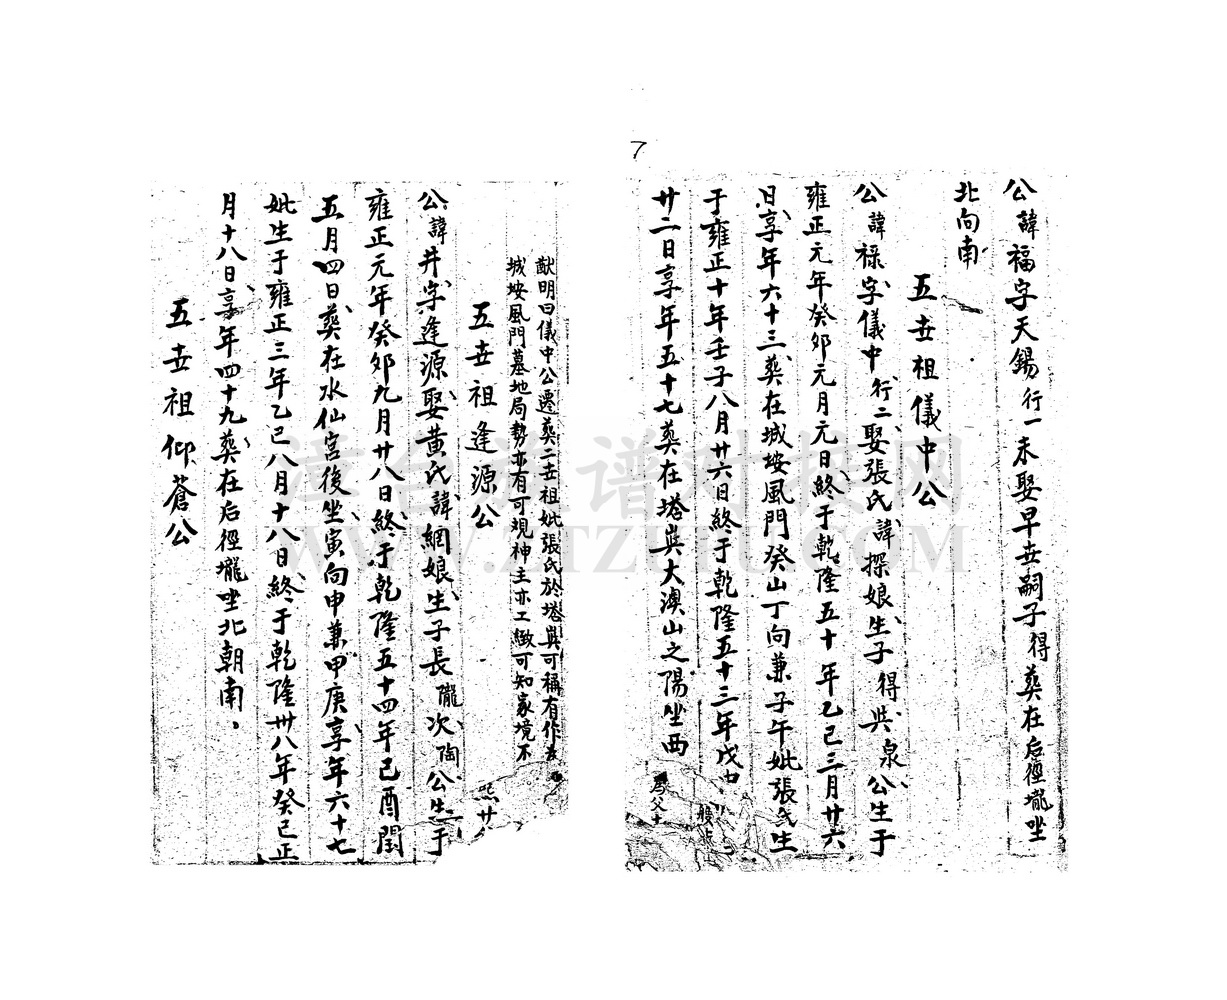 7
公諱福字天錫行一未娶早世嗣子得葬在后徑壠坐
北向南
五世祖儀中公
公諱祿字儀中行二娶張氏諱探娘生子得與泉公生于
雍正元年癸卯元月元日終于乾隆五十年乙巳三月廿六
日享年六十三葬在城垵風門癸山丁向兼子午妣張氏生
于雍正十年壬子八月廿六日終于乾隆五十三年戊
廿二日享年五十七葬在塔與大澳山之陽坐西
猷明曰儀中公遷葬二世祖妣張氏於塔與可稱有作
城垵風門墓地局勢亦有可規神主亦工緻可知家境不
五世祖逢源公
公諱井字逢源娶黃氏諱網娘生子長隴次陶公生于
雍正元年癸卯九月廿八日終于乾隆五十四年己酉閏
五月四日葬在水仙宮後坐寅向申兼甲庚享年六十七
妣生于雍正三年乙巳八月十八日終于乾隆卅八年癸巳正
月十八日享年四十九葬在后徑壠坐北朝南
五世祖仰蒼公
漳台族谱对接网
WWW.ZTZUPU.COM